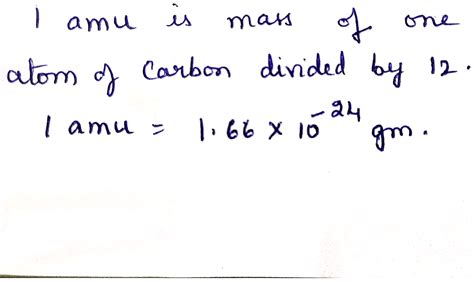 1 amu is mass of one
atom of Carbon divided by 12.
1 amu = 1.66 × 10⁻²⁴ gm.